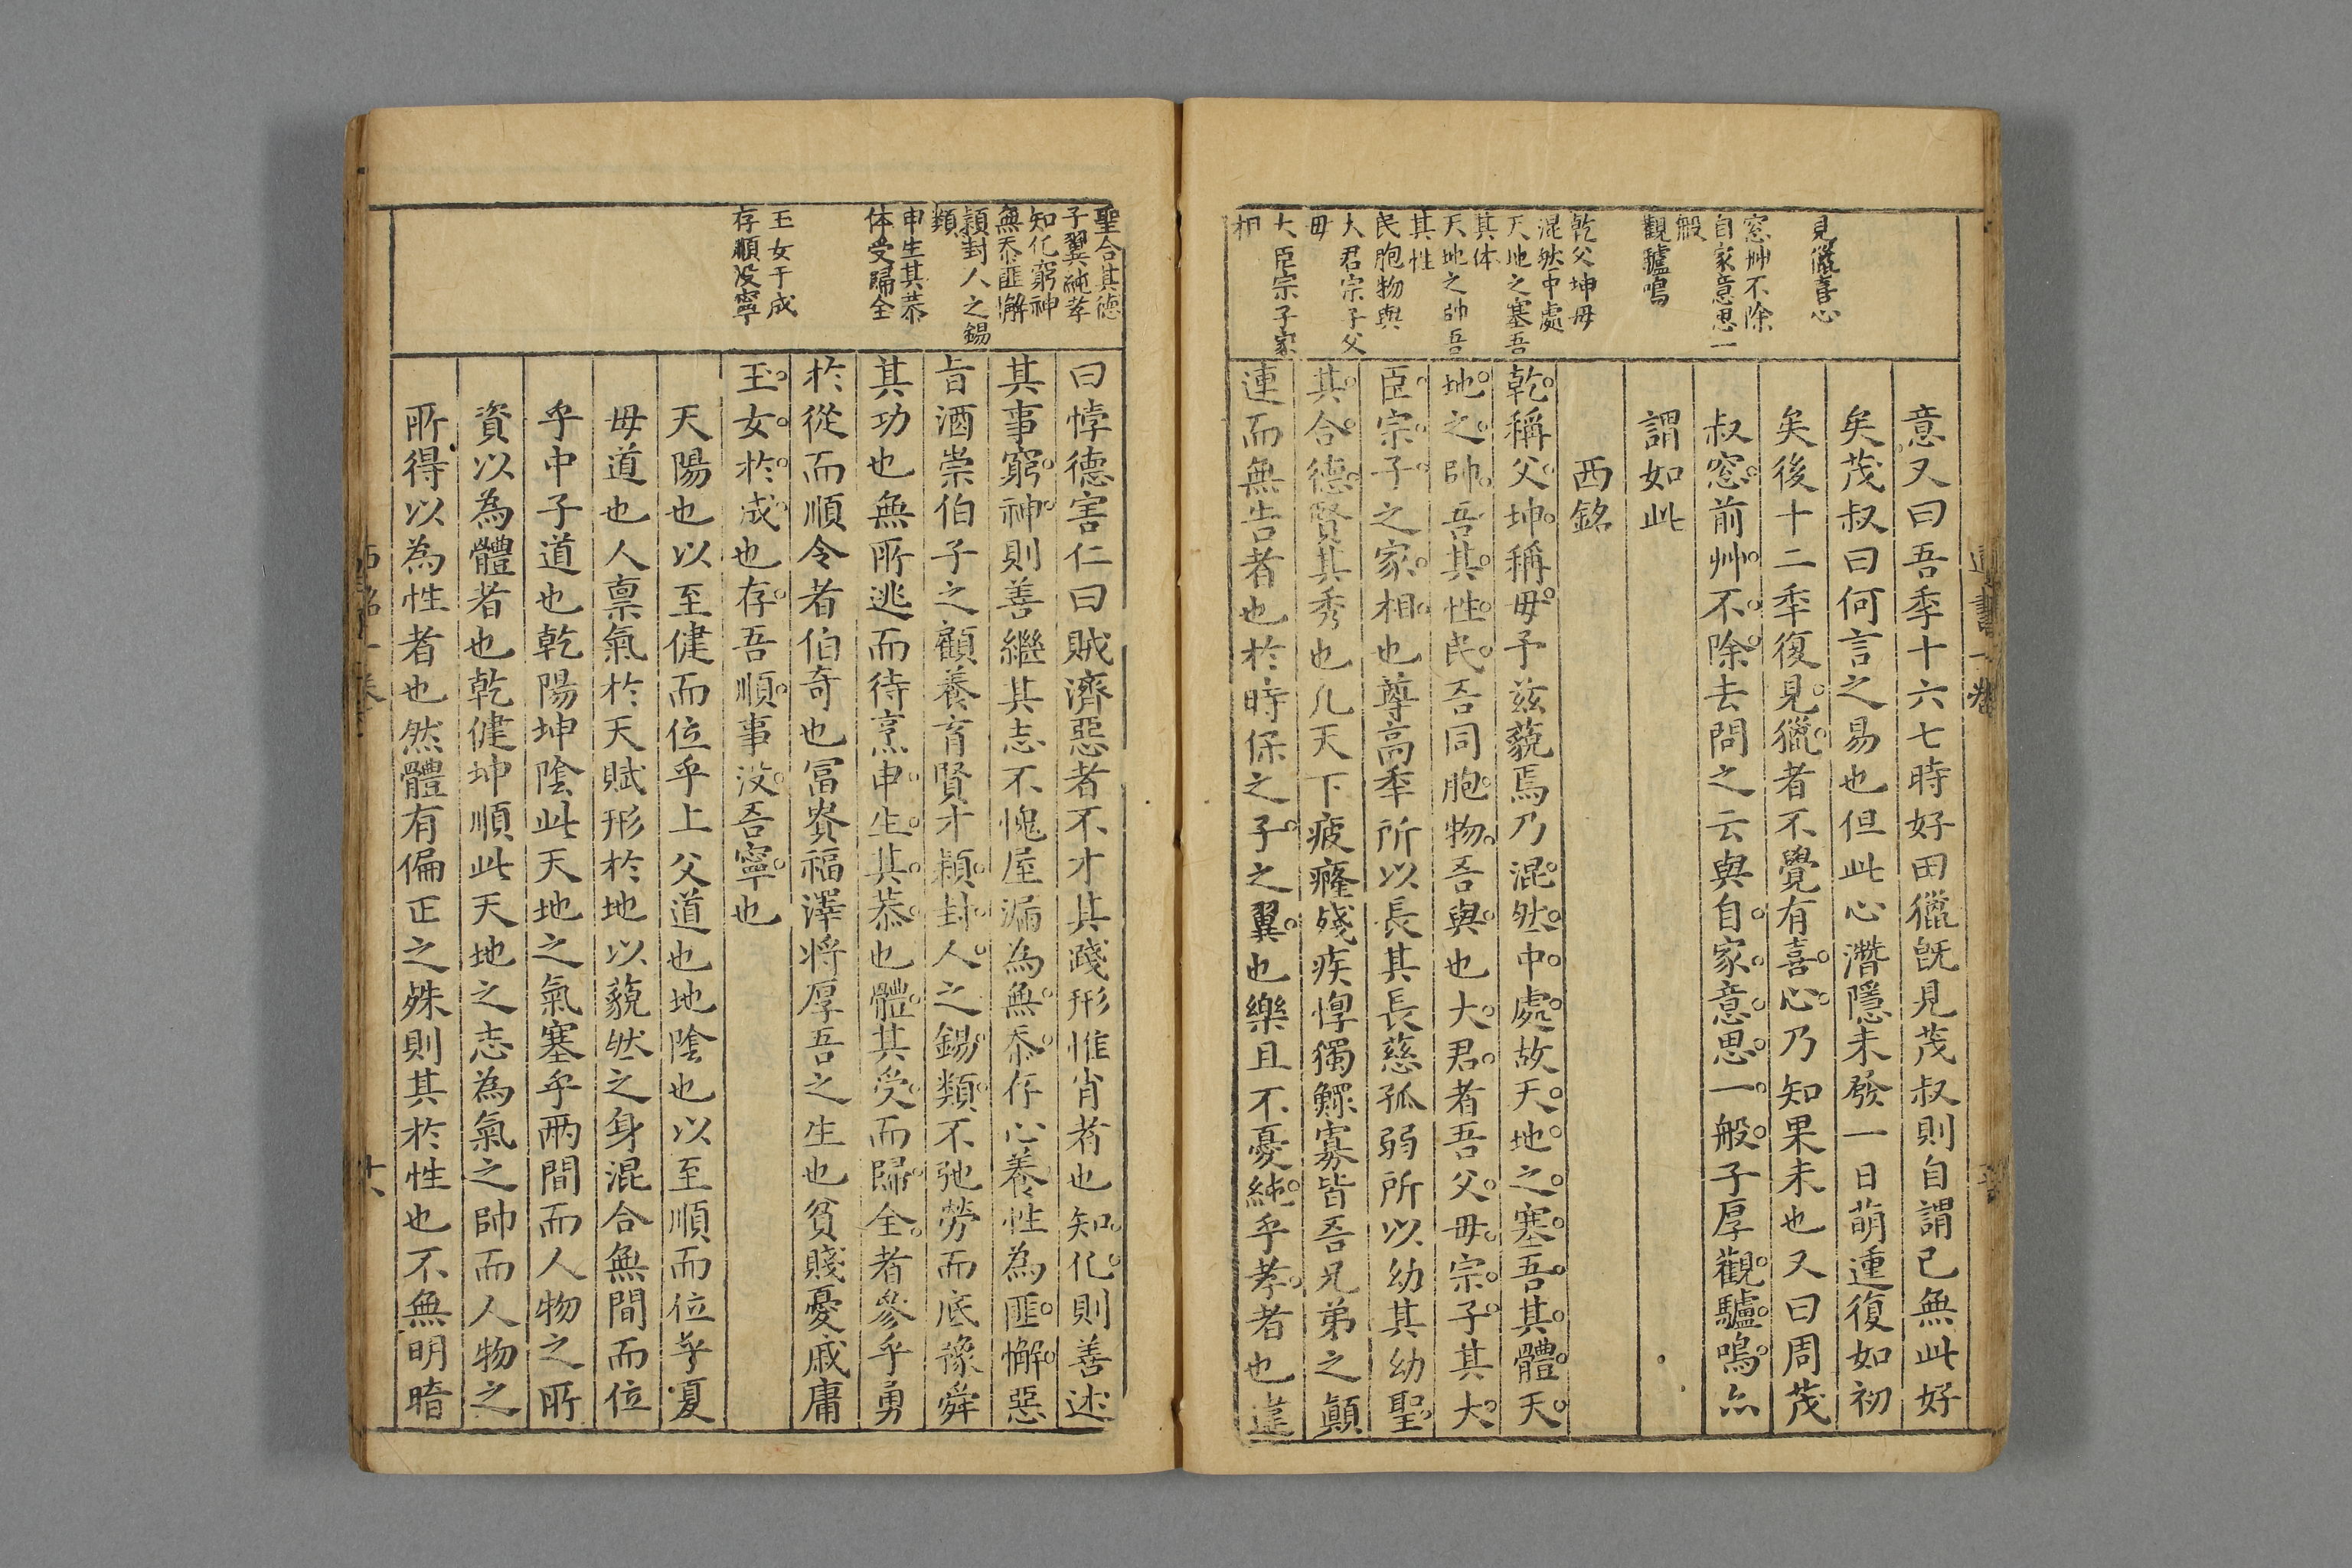 見獵喜心
窓艸不除
自家意思一
般
觀驢鳴
乾父坤毋
混然中處
天地之塞吾
其体
天地之帥吾
其性
民胞物與
大君宗子父
毋
大臣宗子家
相
意又曰吾秊十六七時好田獵旣見茂叔則自謂已無此好
矣茂叔曰何言之易也但此心潛隱未發一日萌運復如初
矣後十二秊復見獵者不覺有喜心乃知果未也又曰周茂
叔窓前艸不除去問之云與自家意思一般子厚觀驢鳴亦
謂如此
西銘
乾稱父坤稱毋予茲藐焉乃混然中處故天地之塞吾其體天
地之帥吾其性民吾同胞物吾與也大君者吾父毋宗子其大
臣宗子之家相也尊高秊所以長其長慈孤弱所以幼其幼聖
其合德賢其秀也凡天下疲癃殘疾惸獨鰥寡皆吾兄弟之顛
連而無告者也於時保之子之翼也樂且不憂純乎孝者也違
聖合其德
子翼純孝
知化窮神
無忝匪懈
穎封人之錫
類
申生其恭
体受歸全
玉女于成
存順没寧
曰悖德害仁曰賊濟惡者不才其踐形惟肖者也知化則善述
其事窮神則善繼其志不愧屋漏為無忝存心養性為匪懈惡
旨酒崇伯子之顧養育賢才穎封人之錫類不弛勞而底豫舜
其功也無所逃而待烹申生其恭也體其受而歸全者參乎勇
於從而順令者伯奇也冨貴福澤將厚吾之生也貧賤憂戚庸
玉女於成也存吾順事没吾寧也
天陽也以至健而位乎上父道也地陰也以至順而位乎夏
毋道也人禀氣於天賦形於地以藐然之身混合無間而位
乎中子道也乾陽坤陰此天地之氣塞乎兩間而人物之所
資以為體者也乾健坤順此天地之志為氣之帥而人物之
所得以為性者也然體有偏正之殊則其於性也不無明暗